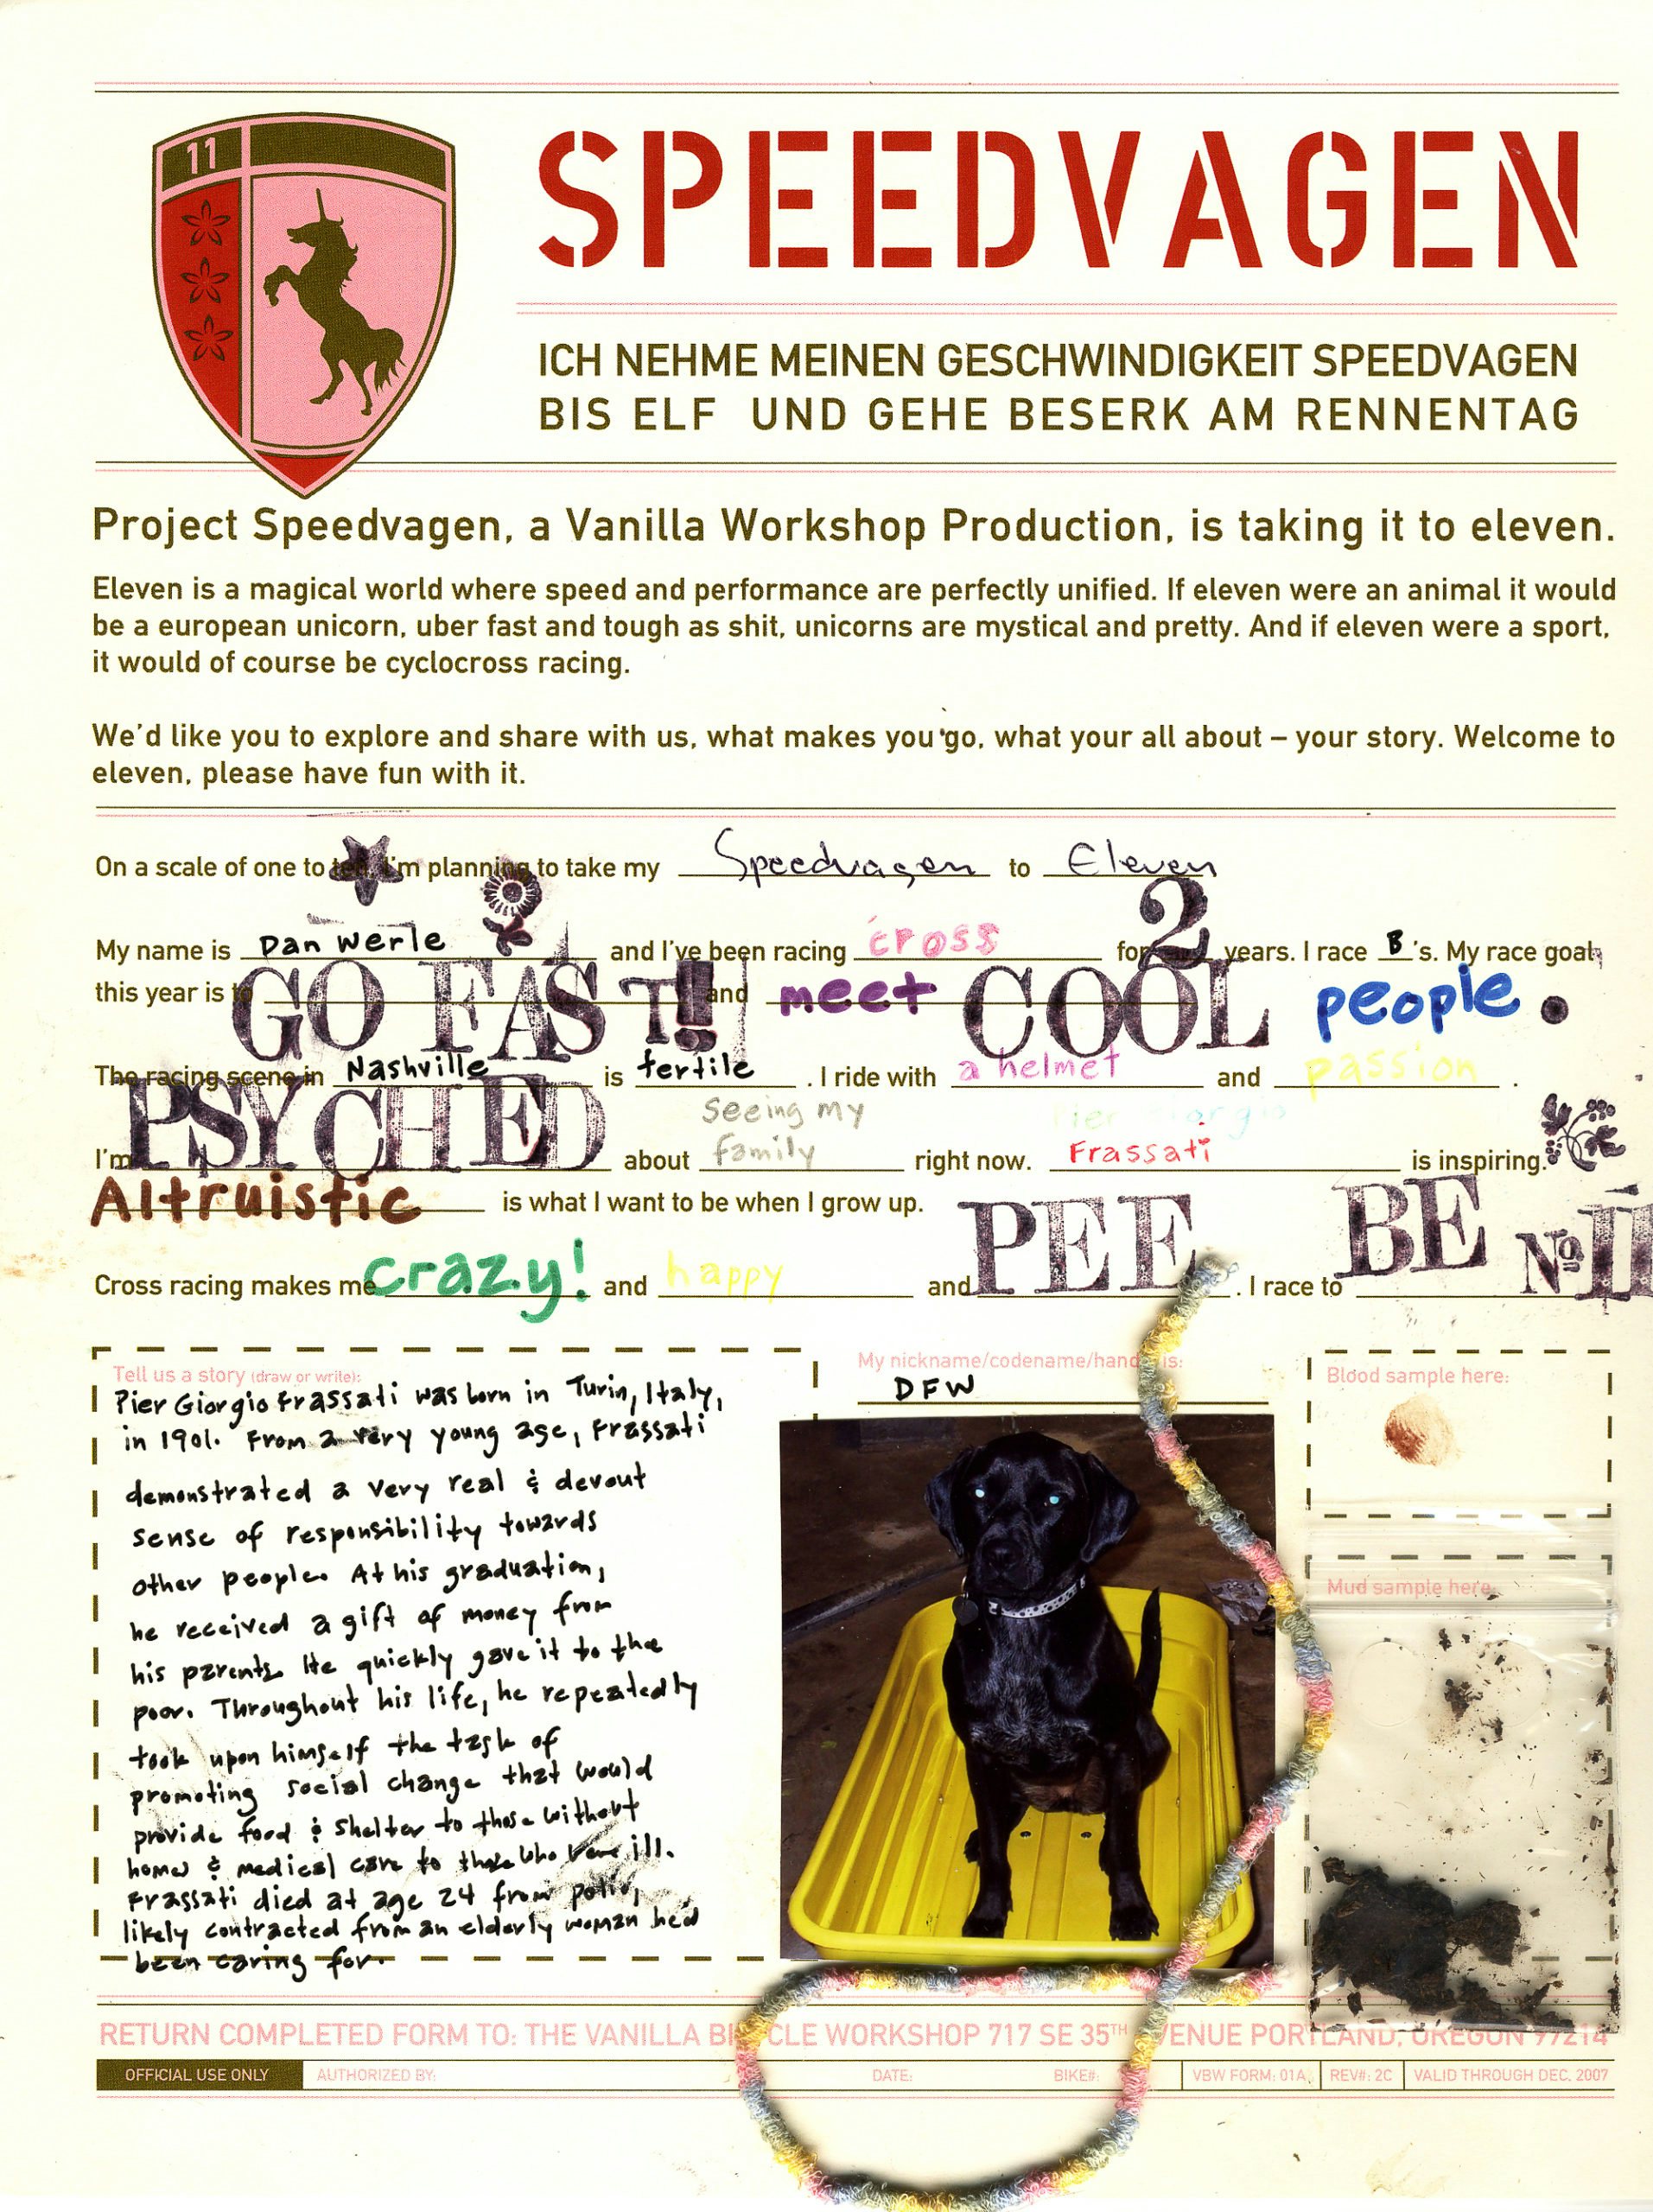 11
SPEEDVAGEN
ICH NEHME MEINEN GESCHWINDIGKEIT SPEEDVAGEN
BIS ELF UND GEHE BESERK AM RENNENTAG
Project Speedvagen, a Vanilla Workshop Production, is taking it to eleven.
Eleven is a magical world where speed and performance are perfectly unified. If eleven were an animal it would
be a european unicorn, uber fast and tough as shit, unicorns are mystical and pretty. And if eleven were a sport,
it would of course be cyclocross racing.
We'd like you to explore and share with us, what makes you go, what your all about – your story. Welcome to
eleven, please have fun with it.
On a scale of one to ten, I'm planning to take my Speedvagen to Eleven
My name is Dan Werle and I've been racing cross for 2 years. I race B's. My race goal,
this year is to GO FAST!! and meet COOL people.
The racing scene in Nashville is fertile. I ride with a helmet and passion.
I'm PSYCHED about seeing my family right now. Pier Giorgio Frassati is inspiring.
Altruistic is what I want to be when I grow up.
Cross racing makes me crazy! and happy and PEE. I race to BE No II
Tell us a story (draw or write):
Pier Giorgio Frassati was born in Turin, Italy,
in 1901. From a very young age, Frassati
demonstrated a very real & devout
sense of responsibility towards
other people. At his graduation,
he received a gift of money from
his parents. He quickly gave it to the
poor. Throughout his life, he repeatedly
took upon himself the task of
promoting social change that would
provide food & shelter to those without
homes & medical care to those who were ill.
Frassati died at age 24 from polio,
likely contracted from an elderly woman he'd
been caring for.
My nickname/codename/handle is:
DFW
Blood sample here:
Mud sample here
RETURN COMPLETED FORM TO: THE VANILLA BICYCLE WORKSHOP 717 SE 35TH AVENUE PORTLAND, OREGON 97214
OFFICIAL USE ONLY AUTHORIZED BY: DATE: BIKE#: VBW FORM: 01A REV#: 2C VALID THROUGH DEC. 2007